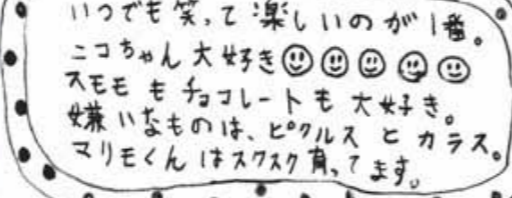 いつでも笑って楽しいのが1番。
ニコちゃん大好き☺☺☺☺☺
スモモもチョコレートも大好き。
嫌いなものは、ピクルスとカラス。
マリモくんはスクスク育ってます。